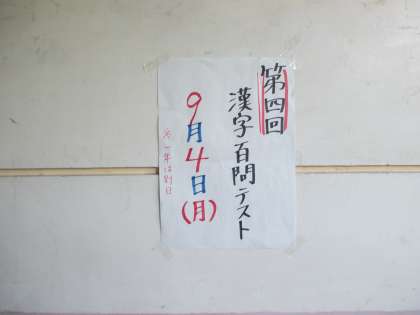 第四回
漢字百問テスト
9月4日(月)
※一年は別日